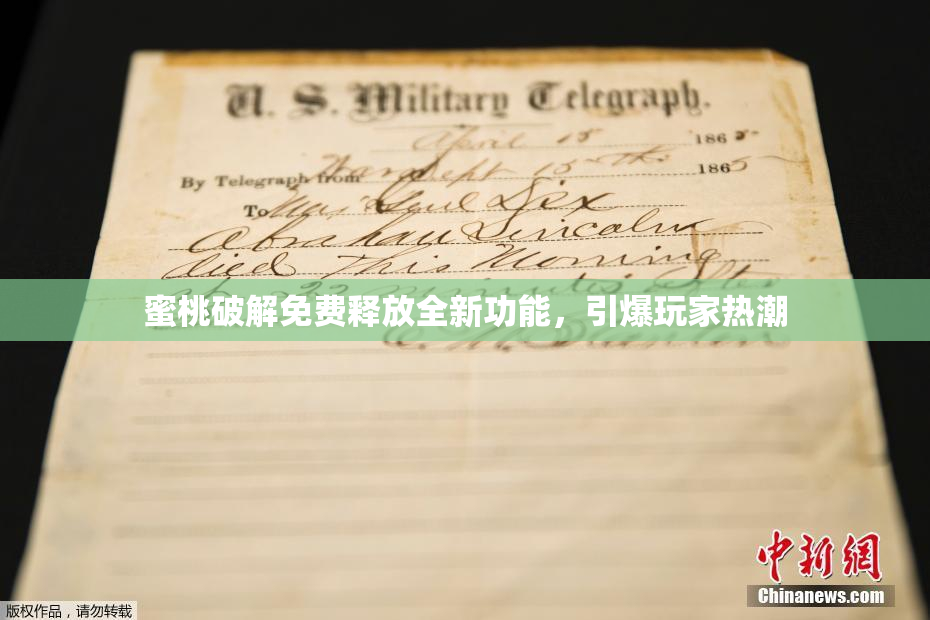 U. S. Military Telegraph.
April 15 1865
By Telegraph from War Dept 15th 1865
To Maj Genl Dix
Abraham Lincoln
died This Morning
22 minutes after
蜜桃破解免费释放全新功能，引爆玩家热潮
E. M. Stanton
中新網
Chinanews.com
版权作品，请勿转载